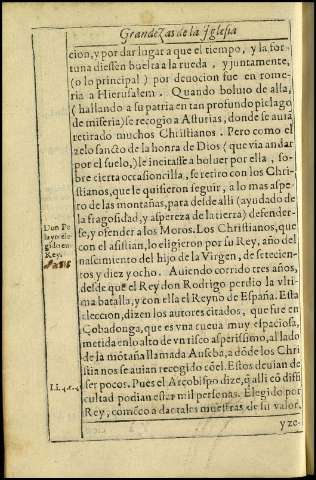 Grandezas de la Iglesia
cion, y por dar lugar a que el tiempo, y la for-
tuna diessen buelta a la rueda, y juntamente,
(o lo principal) por deuocion fue en rome-
ria a Hierusalem. Quando boluio de alla,
(hallando a su patria en tan profundo pielago
de miseria) se recogio a Asturias, donde se auiã
retirado muchos Christianos. Pero como el
zelo sancto de la honra de Dios (que via andar
por el suelo,) le incitasse a boluer por ella, so-
bre cierta occasioncilla, se retiro con los Chri-
stianos, que le quisieron seguir, a lo mas aspe-
ro de las montañas, para desde alli (ayudado de
la fragosidad, y aspereza de la tierra) defender-
se, y ofender a los Moros. Los Christianos, que
con el asistian, lo eligieron por su Rey, año del
nascimiento del hijo de la Virgen, de setecien-
tos y diez y ocho. Auiendo corrido tres años,
desde que el Rey don Rodrigo perdio la vlti-
ma batalla, y con ella el Reyno de España. Esta
eleccion, dizen los autores citados, que fue en
Cobadonga, que es vna cueua muy espaciosa,
metida en lo alto de vn risco asperissimo, al lado
de la mõtaña llamada Auseba, a dõde los Chri
stianos se auian recogido cõ el. Estos deuian de
ser pocos. Pues el Arçobispo dize, q̃ alli cõ diffi
cultad podian estar mil personas. Elegido por
Rey, comẽço a dar tales muestras de su valor,
y ze-
Don Pe
layo ele
gido en
Rey.
Li. 4. c. 4